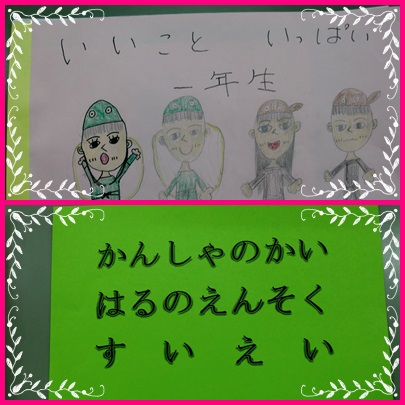 いいこと いっぱい
一年生
かんしゃのかい
はるのえんそく
すいえい